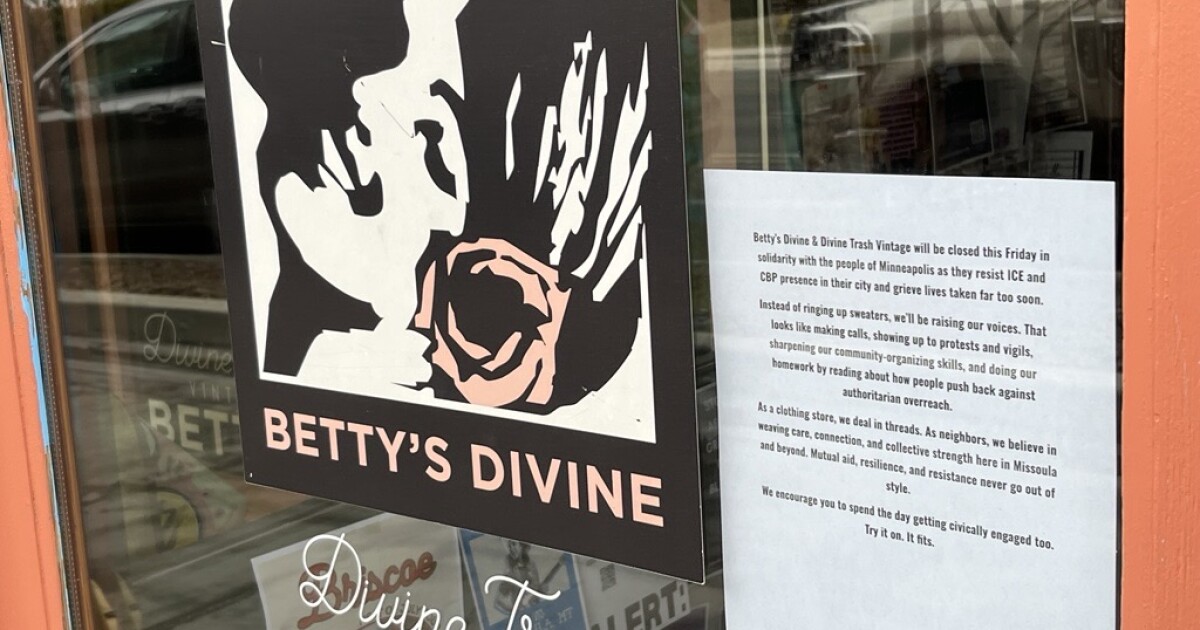 BETTY'S DIVINE
Betty's Divine & Divine Trash Vintage will be closed this Friday in
solidarity with the people of Minneapolis as they resist ICE and
CBP presence in their city and grieve lives taken far too soon.
Instead of ringing up sweaters, we'll be raising our voices. That
looks like making calls, showing up to protests and vigils,
sharpening our community-organizing skills, and doing our
homework by reading about how people push back against
authoritarian overreach.
As a clothing store, we deal in threads. As neighbors, we believe in
weaving care, connection, and collective strength here in Missoula
and beyond. Mutual aid, resilience, and resistance never go out of
style.
We encourage you to spend the day getting civically engaged too.
Try it on. It fits.
Divine
BETT
Briscoe
Divine Tr
ALERT: